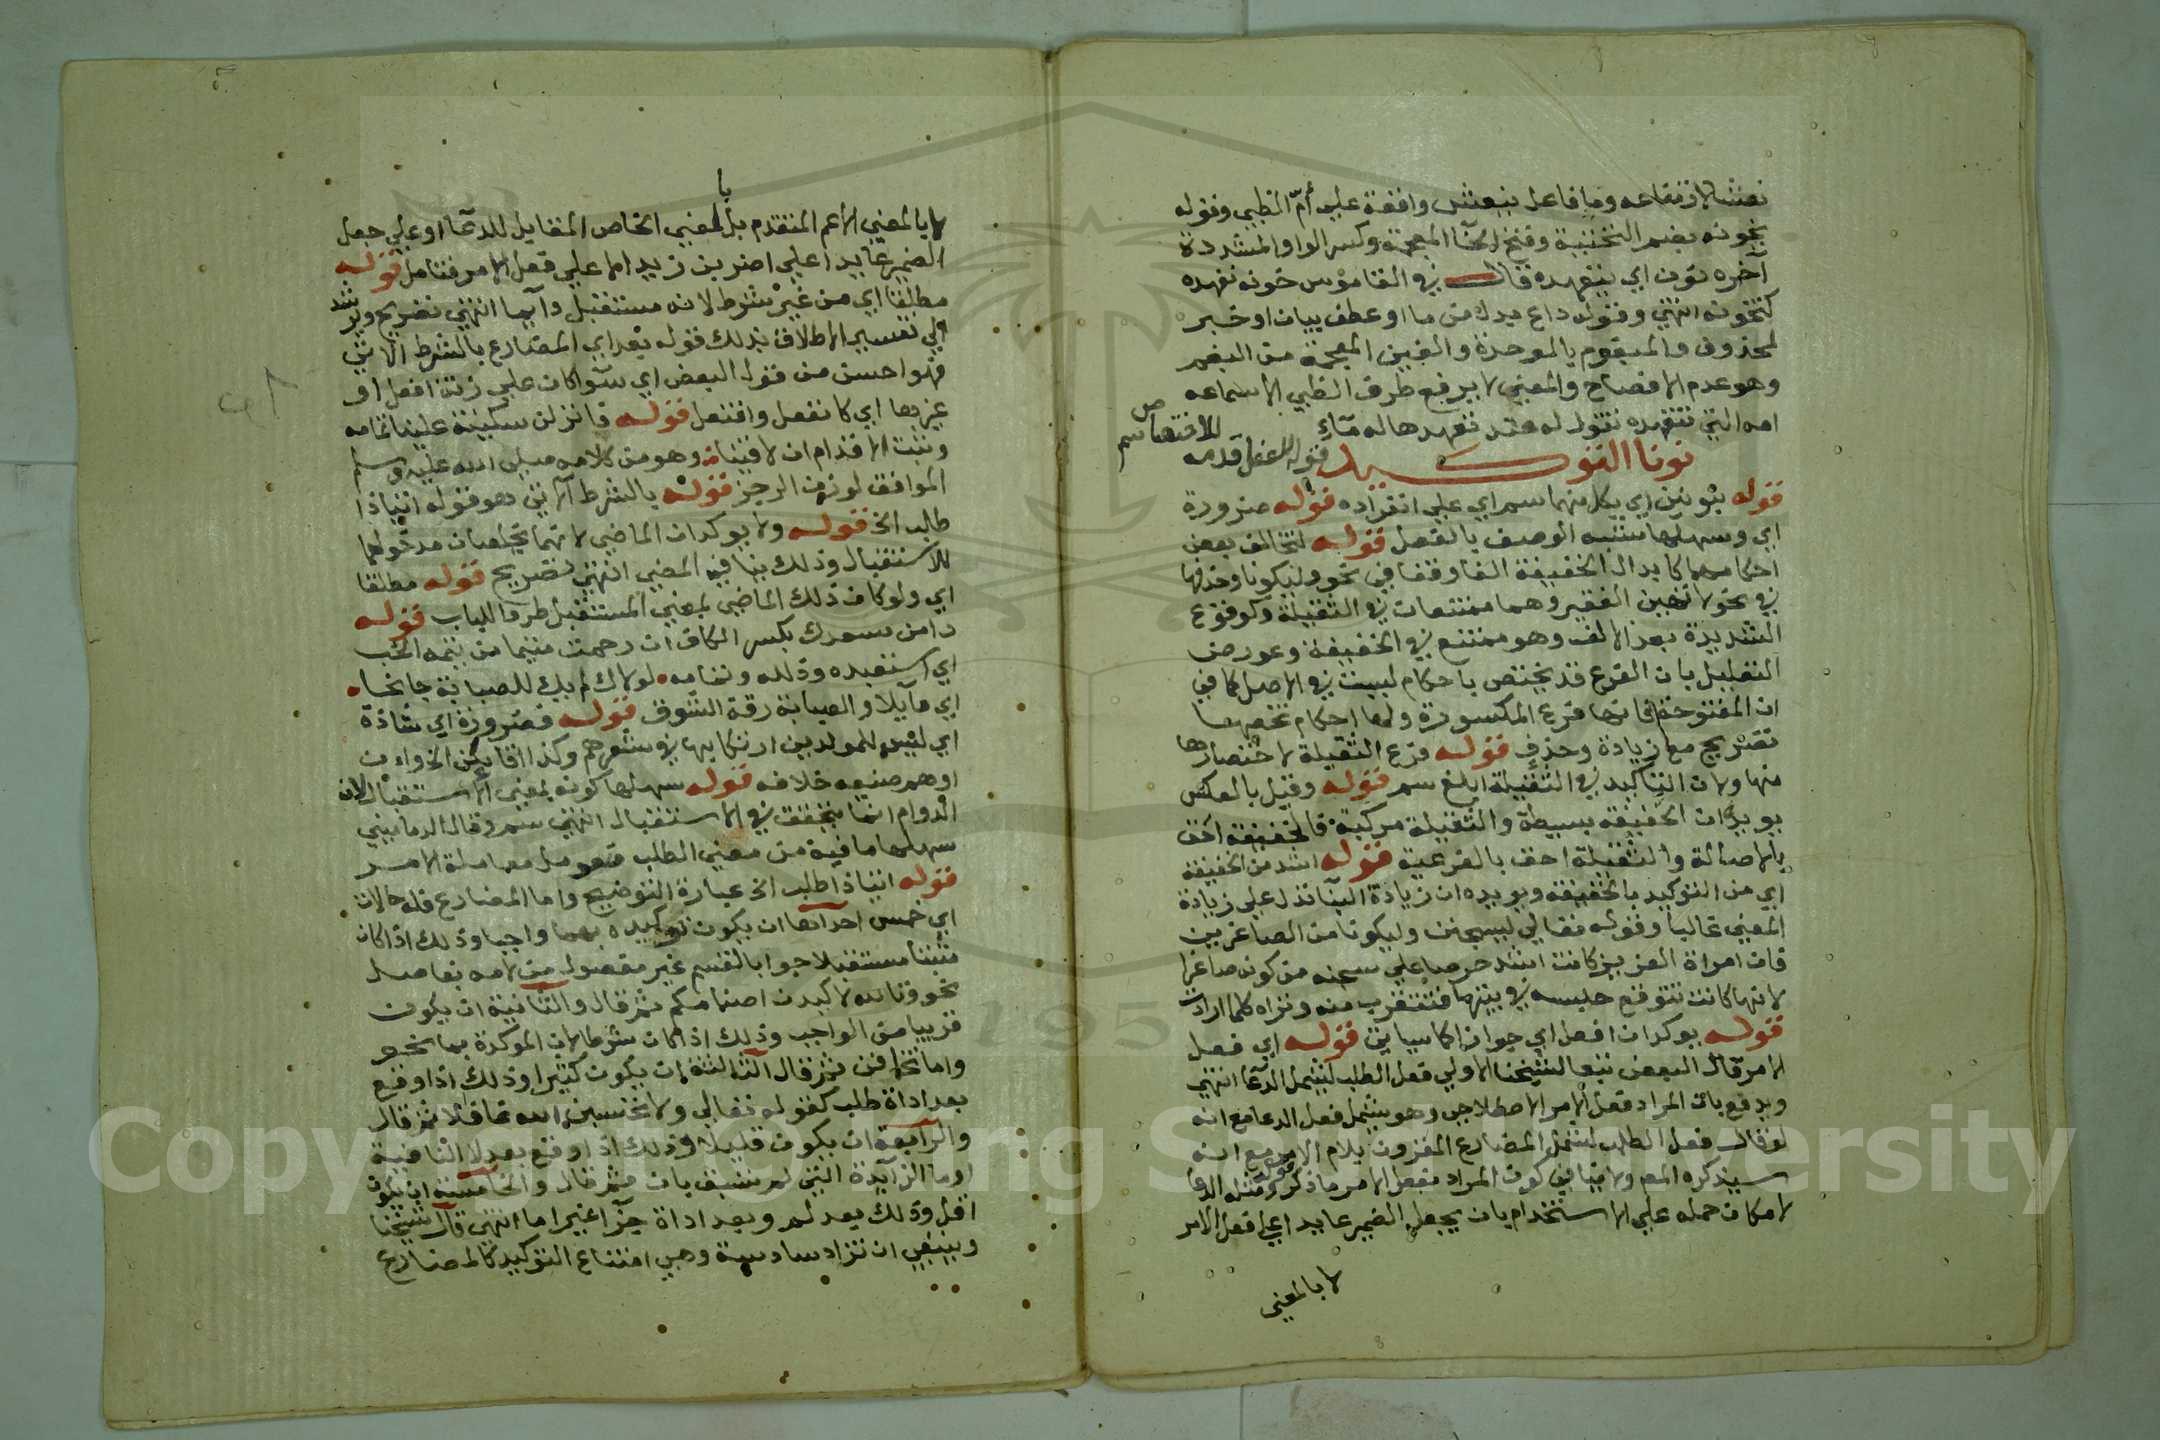 نعتشا لارتفاعه وما فاعل ينعش واقعة علي أمّ الظبي وقوله
يخونه بضم التحتية وفتح الخا المعجمة وكسر الواو المشددة
آخره نون اي يتعهده قال في القاموس خونه تعهده
كتخونه انتهي وقوله داع بدل من ما او عطف بيان او خبر
لمحذوف والمبغوم بالموحدة والغين المعجمة من البغم
وهو عدم الافصاح والمعني لا يرفع طرف الظبي الا سماعه
امه التي تتعهده تقول له عند تعهدها له مآءِ
نونا التوكيد
قوله بنونين اي بكل منهما سم اي علي انفراده قوله ضرورة
اي وسهلها شبه الوصف بالفعل قوله لتخالف بعض
احكامهما كابدال الخفيفة الفا وقفا في نحو وليكونا وحذفها
في نحو لا تهين الفقير وهما ممتنعات في الثقيلة وكوقوع
الشديدة بعد الالف وهو ممتنع في الخفيفة وعورض
التعليل بان الفرع قد يختص باحكام ليست في الاصل كما في
ان المفتوحة فانها فرع المكسورة ولها احكام تخصها
تصريح مع زيادة وحذف قوله فرع الثقيلة لاختصارها
منها ولان التاكيد في الثقيلة ابلغ سم قوله وقيل بالعكس
يويده ان الخفيفة بسيطة والثقيلة مركبة فالخفيفة احق
بالاصالة والثقيلة احق بالفرعية قوله اشد من الخفيفة
اي من التوكيد بالخفيفة ويويده ان زيادة البنا تدل علي زيادة
المعني غالبا وقوله تعالي ليسجنن وليكونا من الصاغرين
فان امراة العزيز كانت اشد حرصا علي سجنه من كونه صاغرا
لانها كانت تتوقع حبسه في بيتها فتقرب منه وتراه كلما ارادت
قوله يوكدان افعل اي جوازا كما سياتي قوله اي فعل
الامر قال البعض تبعا لشيخنا الاولي فعل الطلب ليشمل الدعا انتهي
ويدفع بان المراد فعل الامر الاصطلاحي وهو يشمل فعل الدعا مع انه
لو قال فعل الطلب لشمل المضارع المقرون بلام الامر مع انه
سيذكره المص ولا ينافي كون المراد بفعل الامر ما ذكر قوله ومثله الدعا
لامكان حمله علي الاستخدام بان يجعل الضمير عايدا علي فعل الامر
لا بالمعني
لا بالمعني الاعم المتقدم بل بالمعني الخاص المقابل للدعا او علي جعل
الضمير عايدا علي اضربن زيدا لا علي فعل الامر فتامل قوله
مطلقا اي من غير شرط لانه مستقبل دايما انتهي تصريح ويرشد
الي تفسير الاطلاق بذلك قوله بعد اي المضارع بالشرط الاتي
فهو احسن من قول البعض اي سوا كان علي زنة افعل او
غيرها اي كانفعل وافتعل قوله فانزلن سكينة علينا تمامه
وثبت الاقدام ان لاقينا وهو من كلامه صلي الله عليه وسلم
الموافق لوزن الرجز قوله بالشرط الآتي هو قوله اتيا ذا
طلب الخ قوله ولا يوكدان الماضي لانهما يخلصان مدخولهما
للاستقبال وذلك ينافي المضي انتهي تصريح قوله مطلقا
اي ولو كان ذلك الماضي بمعني المستقبل طردا للباب قوله
دامن سعدك بكسر الكاف ان رحمت متيما من تيمه الحب
اي استعبده وذلله وتمامه لولاك لم يك للصبابة جانحا
اي مآيلا والصبابة رقة الشوق قوله فضرورة اي شاذة
اي ليس للمولدين ارتكابها في شعرهم وكذا اقايلن الخ واءن
اوهم صنيعه خلافه قوله سهلها كونه بمعني الاستقبال لان
الدوام انما يتحقق في الاستقبال انتهي سم وقال الدماميني
سهلها ما فيه من معني الطلب فعومل معاملة الامر
قوله اتيا ذا طلب الخ عبارة التوضيح واما المضارع فله حالات
اي خمس احداها ان يكون توكيده بهما واجبا وذلك اذا كان
مثبتا مستقبلا جوابا لقسم غير مفصول من لامه بفاصل
نحو وتالله لاكيدن اصنامكم ثم قال والثانية ان يكون
قريبا من الواجب وذلك اذا كان شرطا لان الموكدة بما نحو
واما تخافن ثم قال الثالثة ان يكون كثيرا وذلك اذا وقع
بعد اداة طلب كقوله تعالي ولا تحسبن الله غافلا ثم قال
والرابعة ان يكون قليلا وذلك اذا وقع بعد لا النافية
او ما الزآيدة التي لم تسبق بان ثم قال والخامسة ان يكون
اقل وذلك بعد لم وبعد اداة جزآ غير اما انتهي قال شيخنا
وينبغي ان تزاد سادسة وهي امتناع التوكيد كالمضارع
Copyright © King Saud University